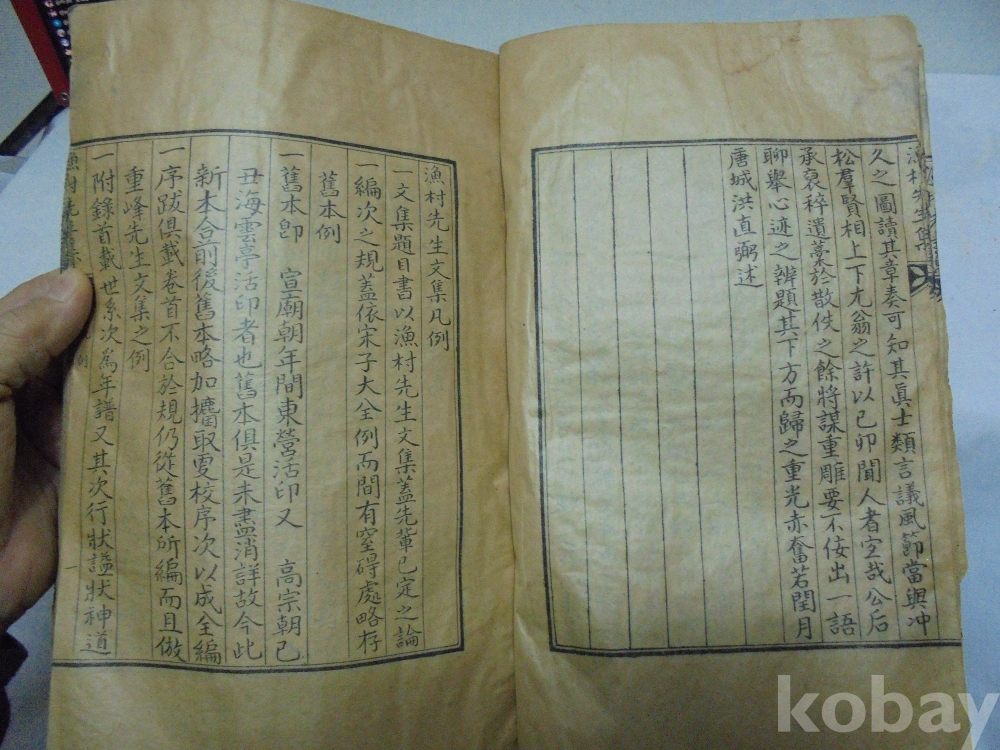 久之圖讀其章奏可知其眞士類言議風節當與冲
松羣賢相上下尤翁之許以己卯聞人者宜哉公后
承裒稡遺藁於散佚之餘將謀重雕要不佞出一語
聊舉心迹之辨題其下方而歸之重光赤奮若閏月
唐城洪直弼述
漁村先生集
漁村先生文集凡例
一文集題目書以漁村先生文集蓋先輩已定之論
一編次之規蓋依宋子大全例而間有窒碍處略存
舊本例
一舊本卽 宣廟朝年間東營活印又 高宗朝己
丑海雲亭活印者也舊本俱是未盡消詳故今此
新本合前後舊本略加攟取更校序次以成全編
一序跋俱載卷首不合於規仍從舊本所編而且倣
重峰先生文集之例
一附錄首載世系次為年譜又其次行狀謚狀神道
一
kobay